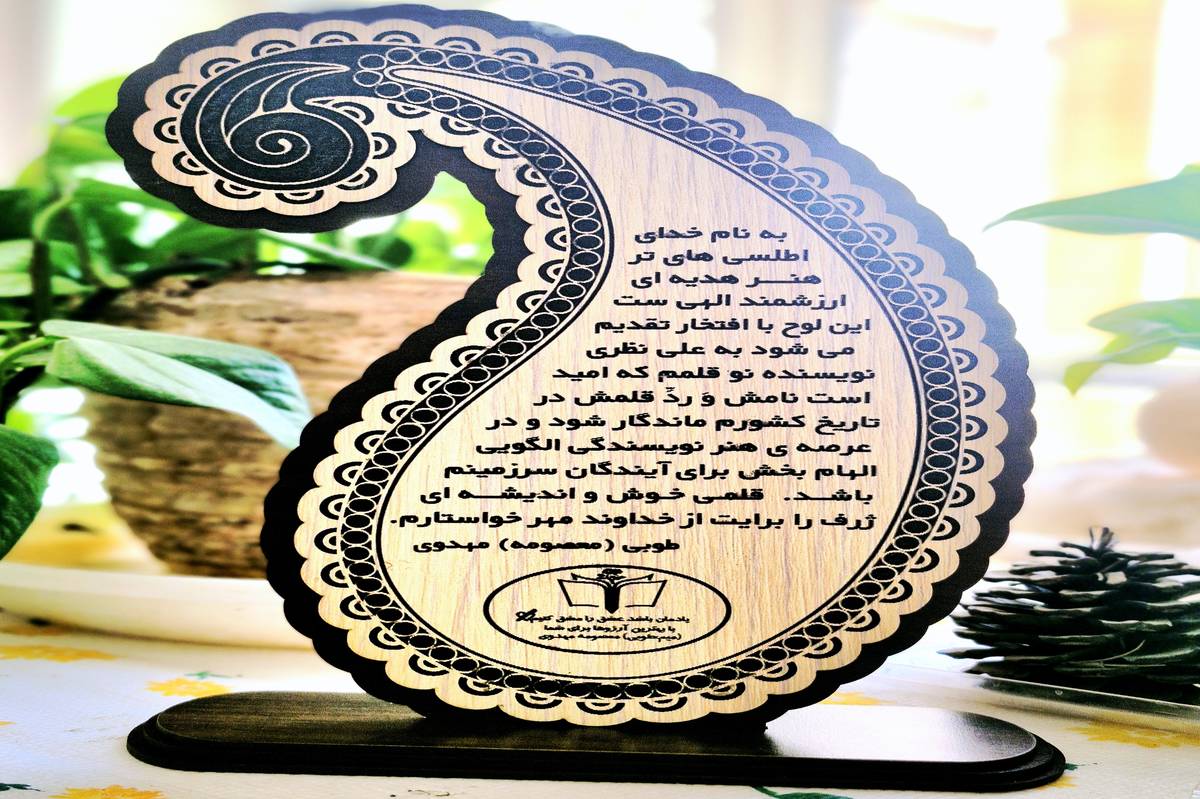 به نام خدای
اطلسی های تر
هنـــر هدیه ای
ارزشمند الهی ست
این لوح با افتخار تقدیم
می شود به علی نظری
نویسنده نو قلمم که امید
است نامش وَ ردِّ قلمش در
تاریخ کشورم ماندگار شود و در
عرصه ی هنر نویسندگی الگویی
الهام بخش برای آیندگان سرزمینم
باشـد. قلمی خوش و اندیشـه ای
ژرف را برایت از خداوند مهر خواستارم.
طوبی (معصومه) مهدوی
یادمان باشد عشق را مشق کنیم
با بهترین آرزوها برای شما
(میم.طوبی) معصومه مهدوی